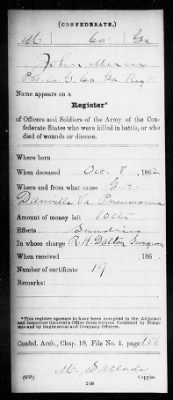 (CONFEDERATE.)
M Co Ga
John
Pvt. Co. G. Ga Regt
Name appears on a
Register*
of Officers and Soldiers of the Army of the Con-
federate States who were killed in battle, or who
died of wounds or disease.
Where born
When deceased Dec. 8, 1862
Where and from what cause G.H.
Danville Va. Pneumonia
Amount of money left 10cts
Effects Sundries
In whose charge Surgeon
When received 186 .
Number of certificate 19
Remarks:
*This register appears to have been compiled in the Adjutant
and Inspector General's Office from
and by Regimental and Company Officers.
Confed. Arch., Chap. 10, File No. 4, page 166
(635) Copyist.